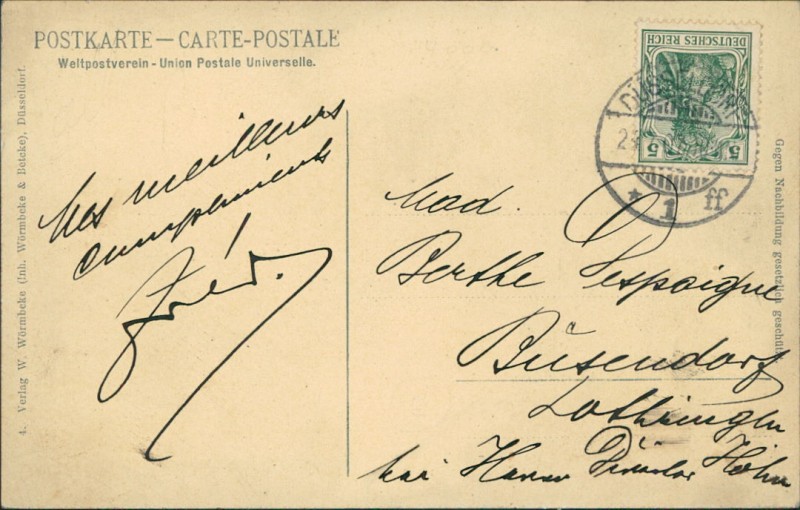 POSTKARTE — CARTE-POSTALE
Weltpostverein - Union Postale Universelle.
Mes meilleurs
compliments
Fréd.
4. Verlag W. Wörmbcke (Inh. Wörmbcke & Betcke), Düsseldorf.
DEUTSCHES REICH
5 5
DÜSSELDORF
* 1 ff
Mad.
Berthe Lespaigne
Büsendorf
Lothringen
bei Herrn Höhn
Gegen Nachbildung gesetzlich geschützt